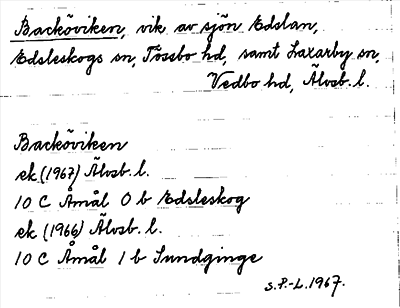 Backöviken, vik av sjön Edslan,
Edsleskogs sn, Tössbo hd, samt Laxarby sn,
Vedbo hd, Älvsb. l.
Backöviken
ek (1967) Älvsb. l.
10 C Åmål 0 b Edsleskog
ek (1966) Älvsb. l.
10 C Åmål 1 b Sundginge
S.P.-L. 1967.